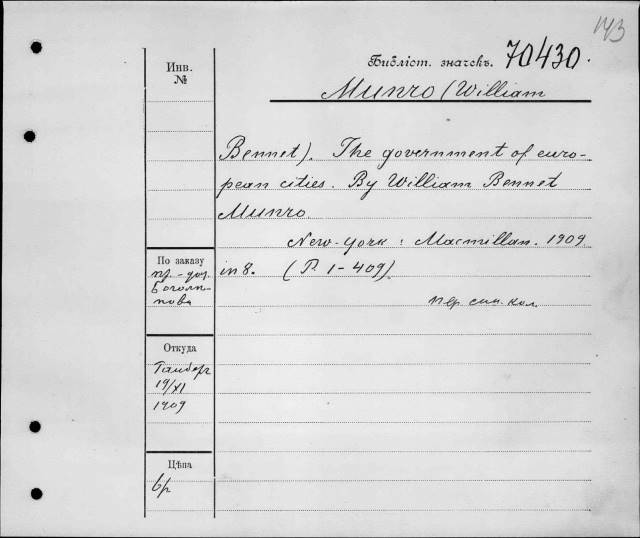 143
Библіот. значекъ. 70430.
Инв.
№
Munro (William
Bennet). The government of euro-
pean cities. By William Bennet
Munro.
New-York: Macmillan. 1909
in 8. (P. 1-409).
пер. син. кол.
По заказу
пр.-доц.
Боголѣ-
пова
Откуда
19/XI
1909
Цѣна
6р